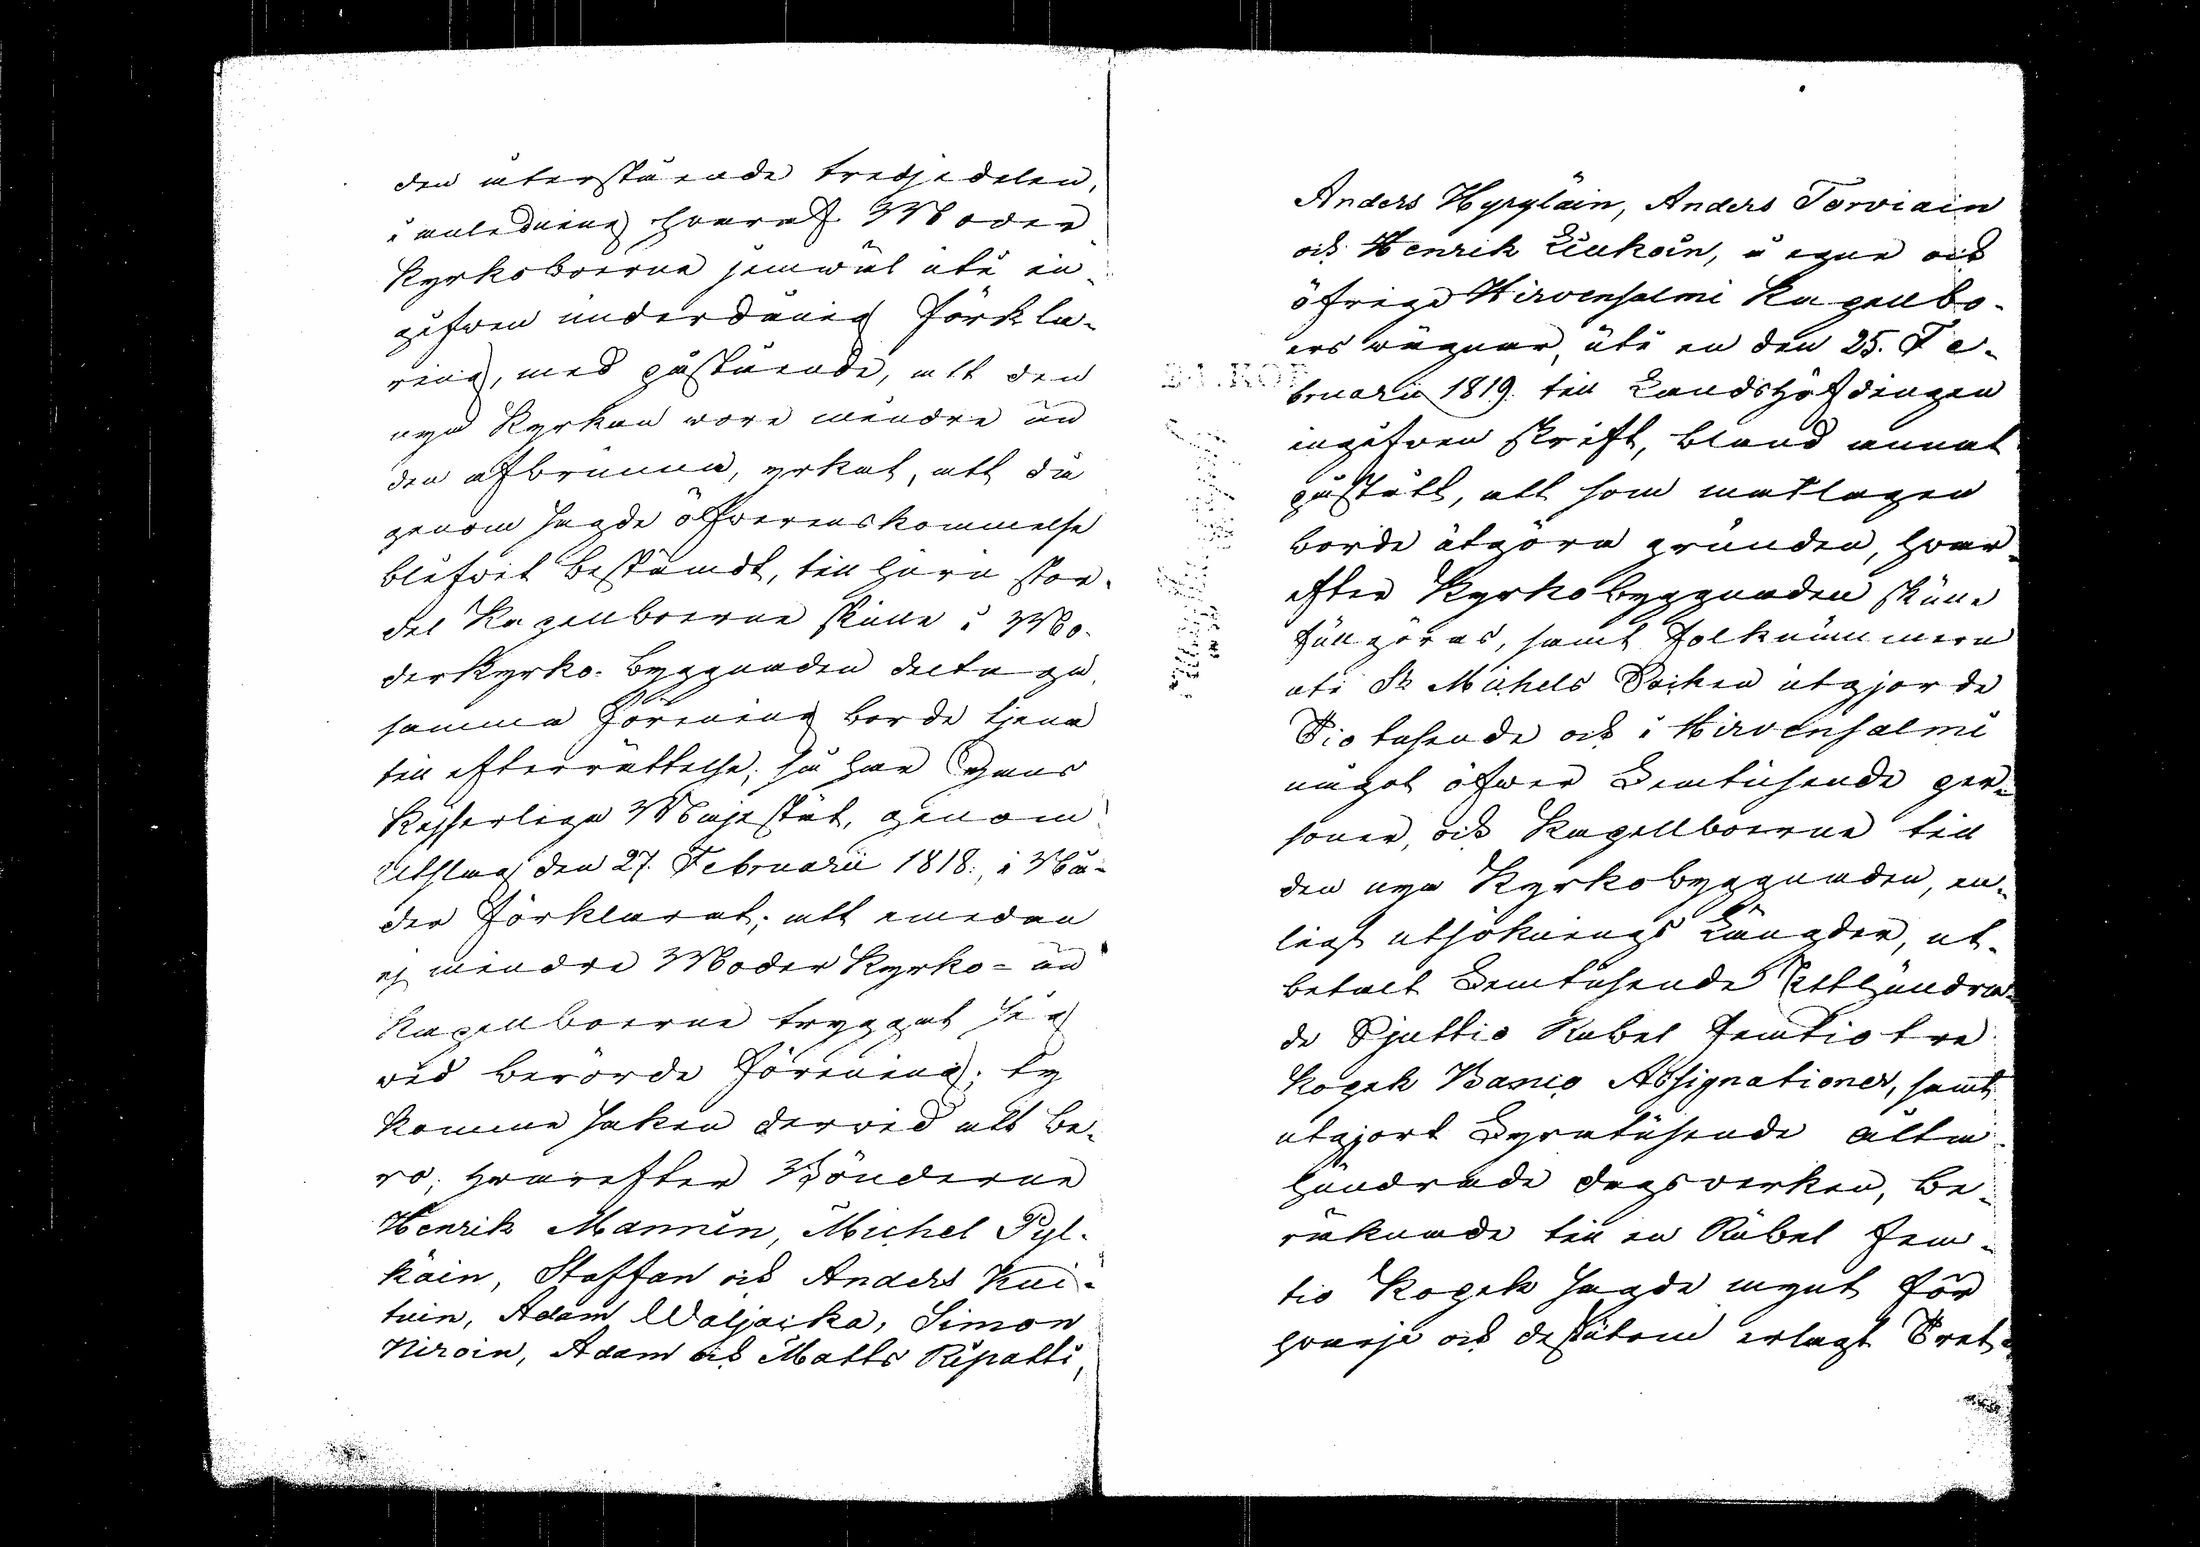 den återstående tredjedelen,
i anledning hvaraf Moder
kyrkoboerne jemwäl uti in-
gifwen underdånig förkla-
ring, med påstående, att den
nya kyrkan wore mindre än
den afbrunna, yrkat, att då
genom sagde öfverenskommelse
blifvit bestämdt, till huru stor
del Kapellboerne skulle i Mo-
derkyrko-byggnaden deltaga,
samma förening borde tjena
till efterrättelse; så har Hans
Kejserliga Majestät, genom
Utslag den 27. Februarii 1818., i Nå-
der förklarat; att emedan
ej mindre Moderkyrko- än
Kapellboerne tryggat sig
vid berörde förening; ty
komme saken dervid att be-
ro; hvarefter Bönderne
Henrik Manninen, Michel Pyl-
käin, Staffan och Anders Kui-
tuin, Adam Waljacka, Simon
Niroin, Adam och Matts Ripatti,
Anders Hyryläin, Anders Torviain
och Henrik Liukoin, å egne och
öfrige Hirvensalmi Kapellbo-
ers wägnar, uti en den 25. Fe-
bruarii 1819. till Landshöfdingen
ingifven skrift, bland annat
påstått, att som matlagen
borde utgöra grunden, hvar-
efter Kyrkobyggnaden skulle
fullgöras, samt folknummern
uti St Michels Socken utgjorde
Tiotusende och i Hirvensalmi
något öfwer Femtusende per-
soner, och Kapellboerne till
den nya Kyrkobyggnaden, en-
ligt utsöknings Längder, ut-
betalt Femtusende Etthundra-
de Sjuttio Rubel femtiotre
Kopek Banco Assignationer, samt
utgjort Fyratusende Åtta
hundrade dagsverken, be-
räknade till en Rubel fem-
tio Kopek sagde mynt för
hvarje och dessutom erlagt Tret-